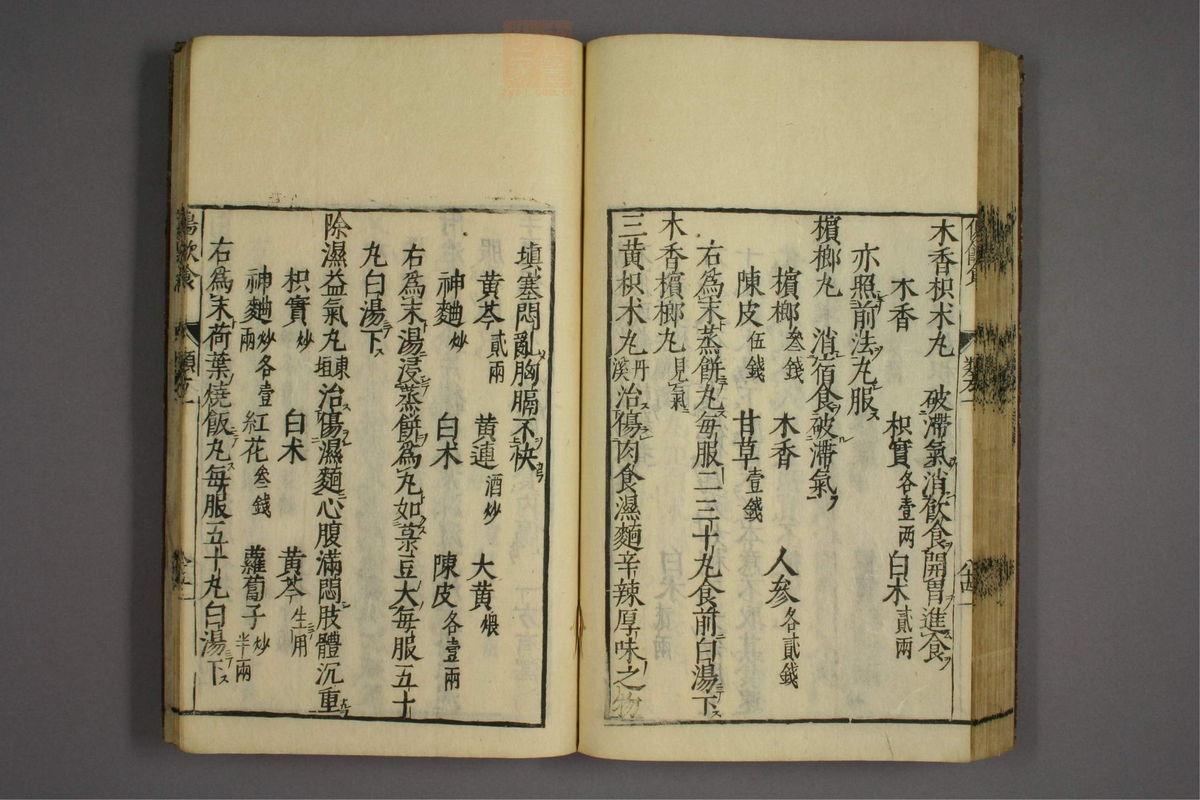 木香枳朮丸 破滯氣消飲食開胃進食
木香 枳實各壹兩 白朮貳兩
亦照前法丸服
檳榔丸 消宿食破滯氣
檳榔叁錢 木香 人參各貳錢
陳皮伍錢 甘草壹錢
右爲末蒸餅丸每服二三十丸食前白湯下
木香檳榔丸見氣
三黃枳朮丸丹溪治傷肉食濕麵辛辣厚味之物
填塞悶亂胸膈不快
黃芩貳兩 黃連酒炒 大黃煨
神麯炒 白朮 陳皮各壹兩
右爲末湯浸蒸餅爲丸如菉豆大每服五十
丸白湯下
除濕益氣丸東垣治傷濕麵心腹滿悶肢體沉重
枳實炒 白朮 黃芩生用
神麯炒各壹兩 紅花叁錢 蘿蔔子炒半兩
右爲末荷葉燒飯丸每服五十丸白湯下